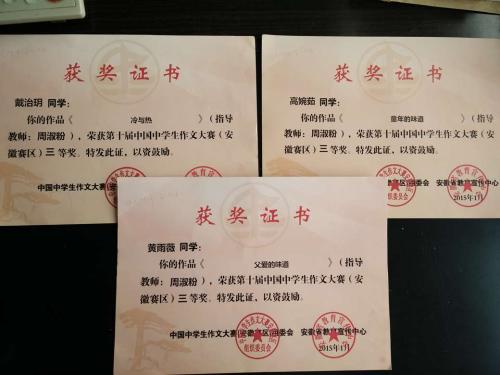 获奖证书
戴治玥 同学:
你的作品《 冷与热 》(指导
教师:周淑粉),荣获第十届中国中学生作文大赛(安
徽赛区)三等奖。特发此证,以资鼓励。
中国中学生作文大赛(安
获奖证书
高婉茹 同学:
你的作品《 童年的味道 》(指导
教师:周淑粉),荣获第十届中国中学生作文大赛(安
徽赛区)三等奖。特发此证,以资鼓励。
赛区)组委会 安徽省教育宣传中心
组织委员会
2015年1月
获奖证书
黄雨薇 同学:
你的作品《 父爱的味道 》(指导
教师:周淑粉),荣获第十届中国中学生作文大赛(安
徽赛区)三等奖。特发此证,以资鼓励。
中国中学生作文大赛(安徽赛区)组委会 安徽省教育宣传中心
组织委员会
2015年1月